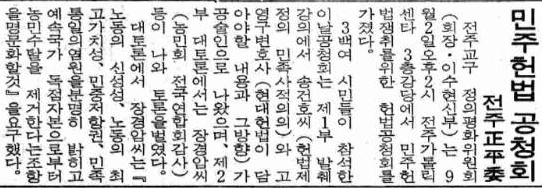 민주헌법 공청회
전주正平委
전주교구 정의평화위원회
(회장·이수현신부)는 9
월2일오후2시 전주가톨릭
센타 3층강당에서 민주헌
법쟁취를위한 헌법공청회를
가졌다.
3백여 시민들이 참석한
이날공청회는 제1부 발췌
강의에서 송건호씨(헌법제
정의 민족사적의의)와 고
영구변호사(현대헌법이 담
아야할 내용과그방향)가
공술인으로 나왔으며, 제2
부 대토론에서는 장경암씨
(농민회 전국연합회감사)
등이 나와 토론을벌였다.
대토론에서 장경암씨는『
노동의 신성성、노동의 최
고가치성、민중저항권、민족
통일의염원을분명히 밝히고
예속국가 독점자본으로부터
농민수탈을 제거한다는조항
을명문화할것』을요구했다.